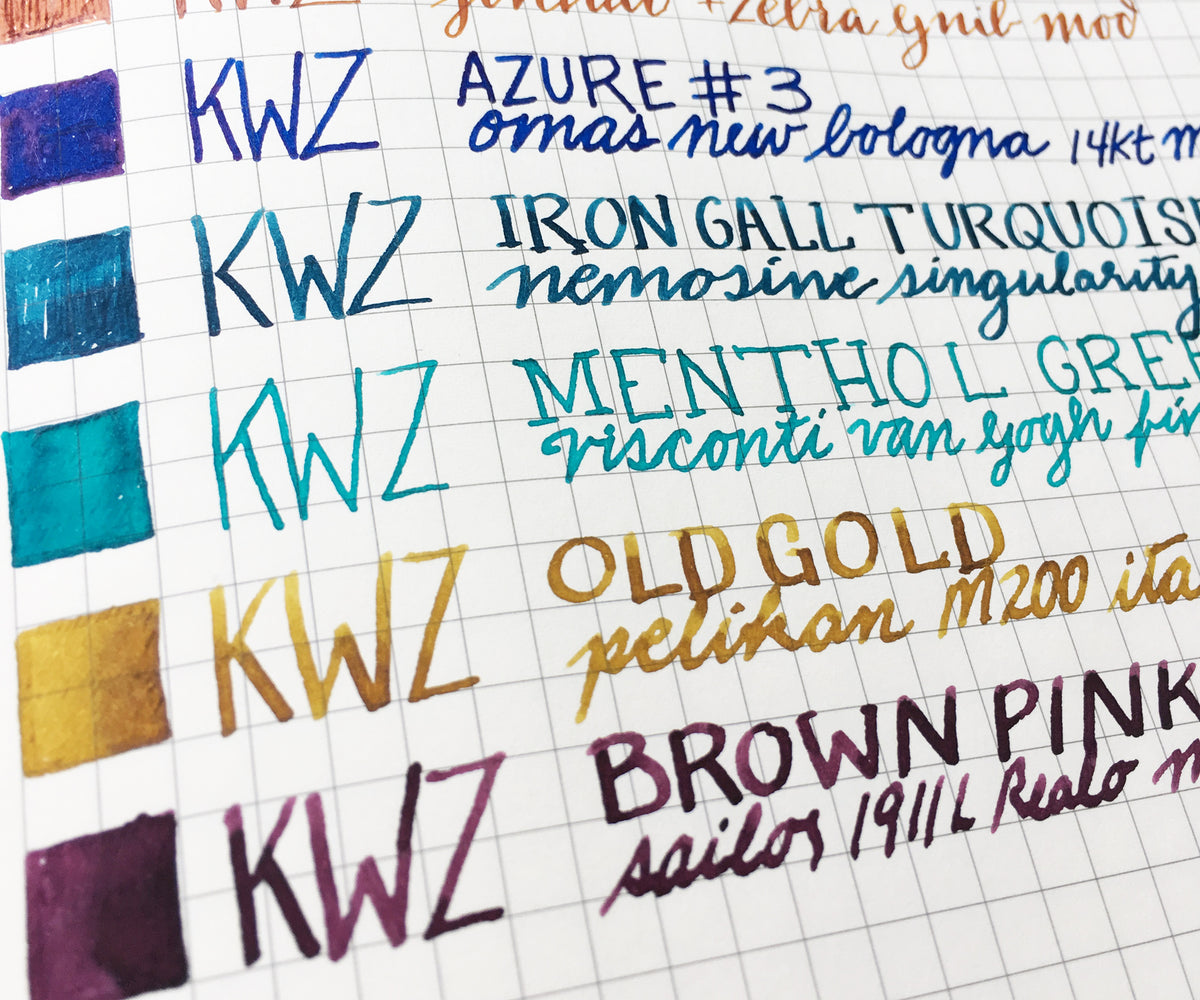 KWZ
+zebra gnib mod
KWZ AZURE #3
omas new bologna 14kt
KWZ IRON GALL TURQUOIS
nemosine singularity
KWZ MENTHOL GREE
visconti van gogh fin
KWZ OLD GOLD
pelikan M200 ita
KWZ BROWN PINK
sailor 1911L Realo